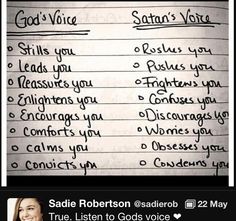 God's Voice
o Stills you
o Leads you
o Reassures you
o Enlightens you
o Encourages you
o Comforts you
o calms you
o Convicts you
Satan's Voice
o Rushes you
o Pushes you
o Frightens you
o Confuses you
o Discourages you
o Worries you
o Obsesses you
o Condemns you
Sadie Robertson @sadierob 22 May
True. Listen to Gods voice ❤